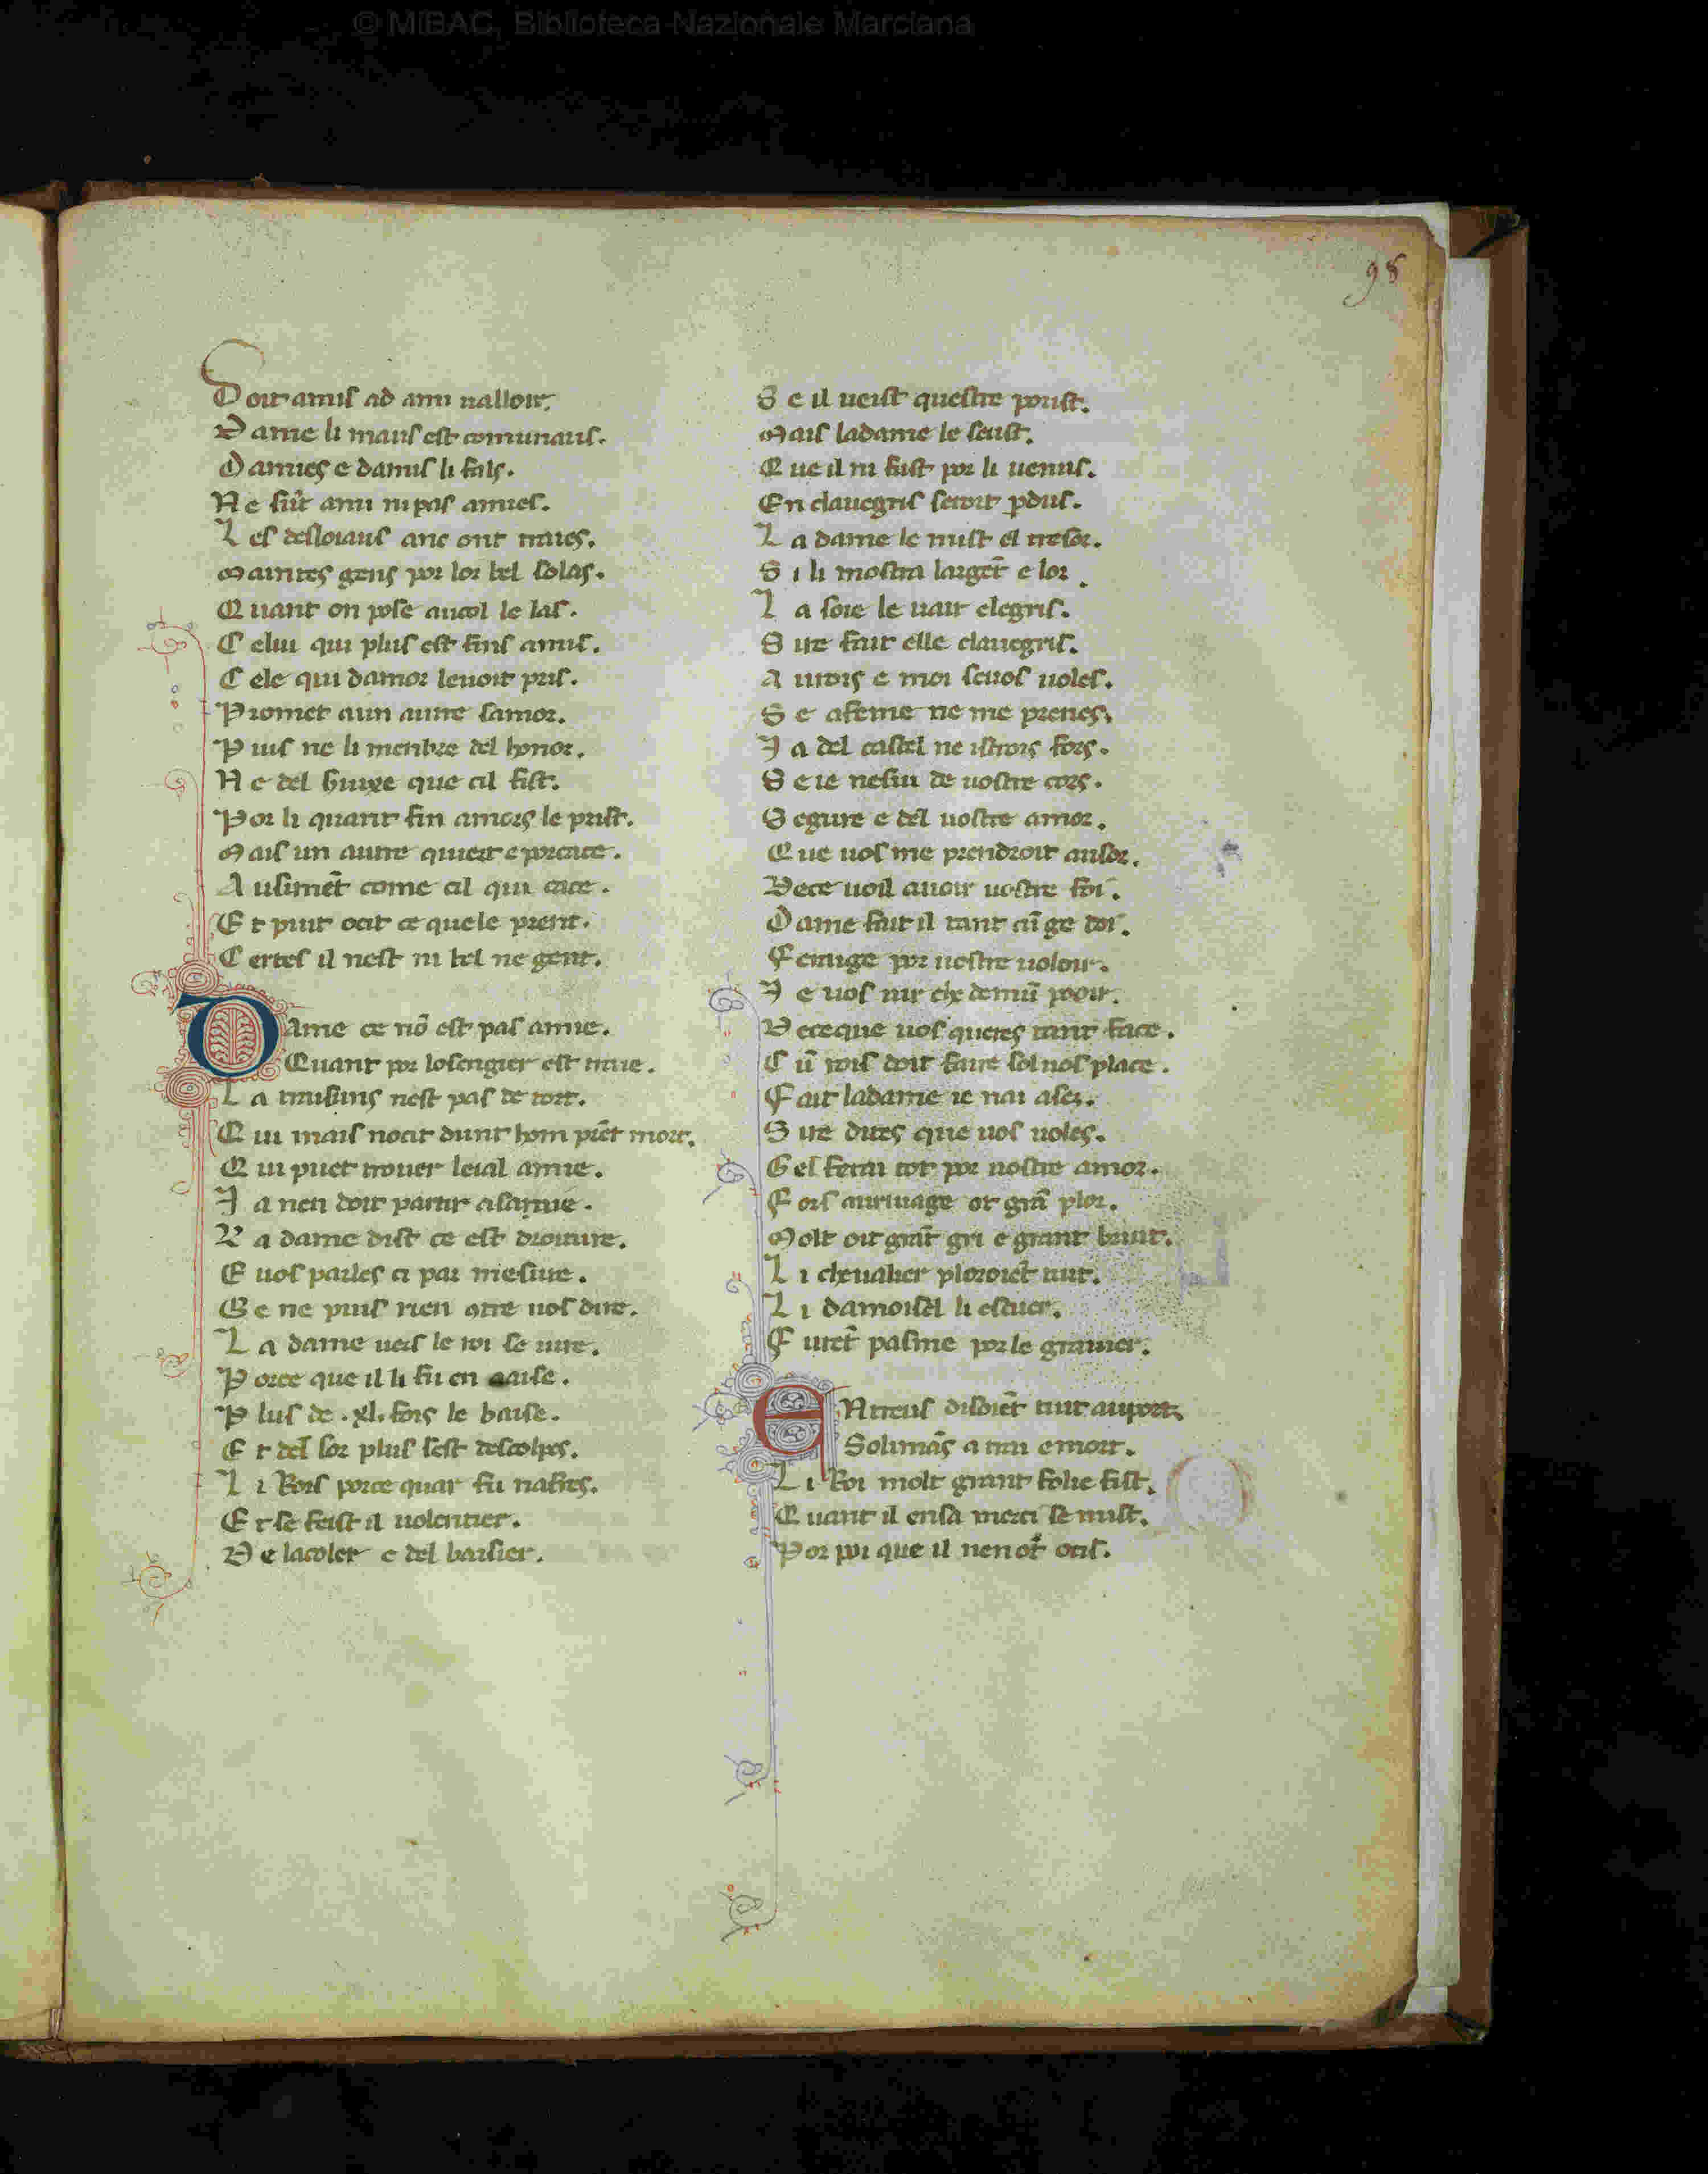 © MiBAC, Biblioteca Nazionale Marciana
98
Doit amis ad ami valloir.
Dame li maus est comunaus.
Damies e damis li fals.
Ne sūt ami ni pas amies.
Les desloiaus anc ont traies.
Maintes gens por lor bel solas.
Quant on pose aucol le las.
Celui qui plus est fins amis.
Cele qui damor lenoit pris.
Promet aun autre samor.
Puis ne li menbre del honor.
Ne del que cil fist.
Por li quant fin amors le prist.
Mais un autre quiert e porcace.
Ausimēt come cil qui cace.
Et puit ocit ce quele prent.
Certes il nest ni bel ne gent.
Dame ce nō est pas amie.
Quant por losengier est traie.
La traisuns nest pas de tort.
Qui mais nocit dunt hom prēt mort.
Qui puet trover leial amie.
Ja nen doit partir asamie.
La dame dist ce est droiture.
E vos parles ci par mesure.
Ge ne puis rien otre vos dire.
La dame vers le roi se vire.
Porce que il li fu en aaise.
Plus de .xl. fois le baise.
Et del sor plus sest descolpes.
Li Rois porce quar fu nafres.
Et se feist il volentier.
De lacoler e del baisier.
Se il veist questre poust.
Mais ladame le seust.
Que il ni fust por li venus.
En clavegris seroit pdus.
La dame le mist el tresor.
Si li mostra largēt e lor.
La soie le vair elegris.
Sire fait elle clavegris.
Aurois e moi sevos voles.
Se afeme ne me prenes.
Ja del castel ne istrois fors.
Se ie nesui de vostre cors.
Segure e del vostre amor.
Que vos me prendroit ausor.
Dece voil avoir vostre foi.
Dame fait il tant cū ge doi.
Ferauge por vostre voloir.
Je vos nir che demū pooir.
Deceque vos queres tant face.
Cū rois doit faire sol nos place.
Fait ladame ie nai ases.
Sire dites que vos voles.
Gel ferai tot por vostre amor.
Fors aurivage ot grā plor.
Molt oit grāt gri e grant bruit.
Li chevalier ploroiēt tuit.
Li damoisel li escuer.
Furēt pasme por le gravier.
Entreus disoiēt tuit auport.
Solimās a trai emort.
Li Roi molt grant folie fist.
Quant il ensa merci se mist.
Por poi que il nen ot ocis.